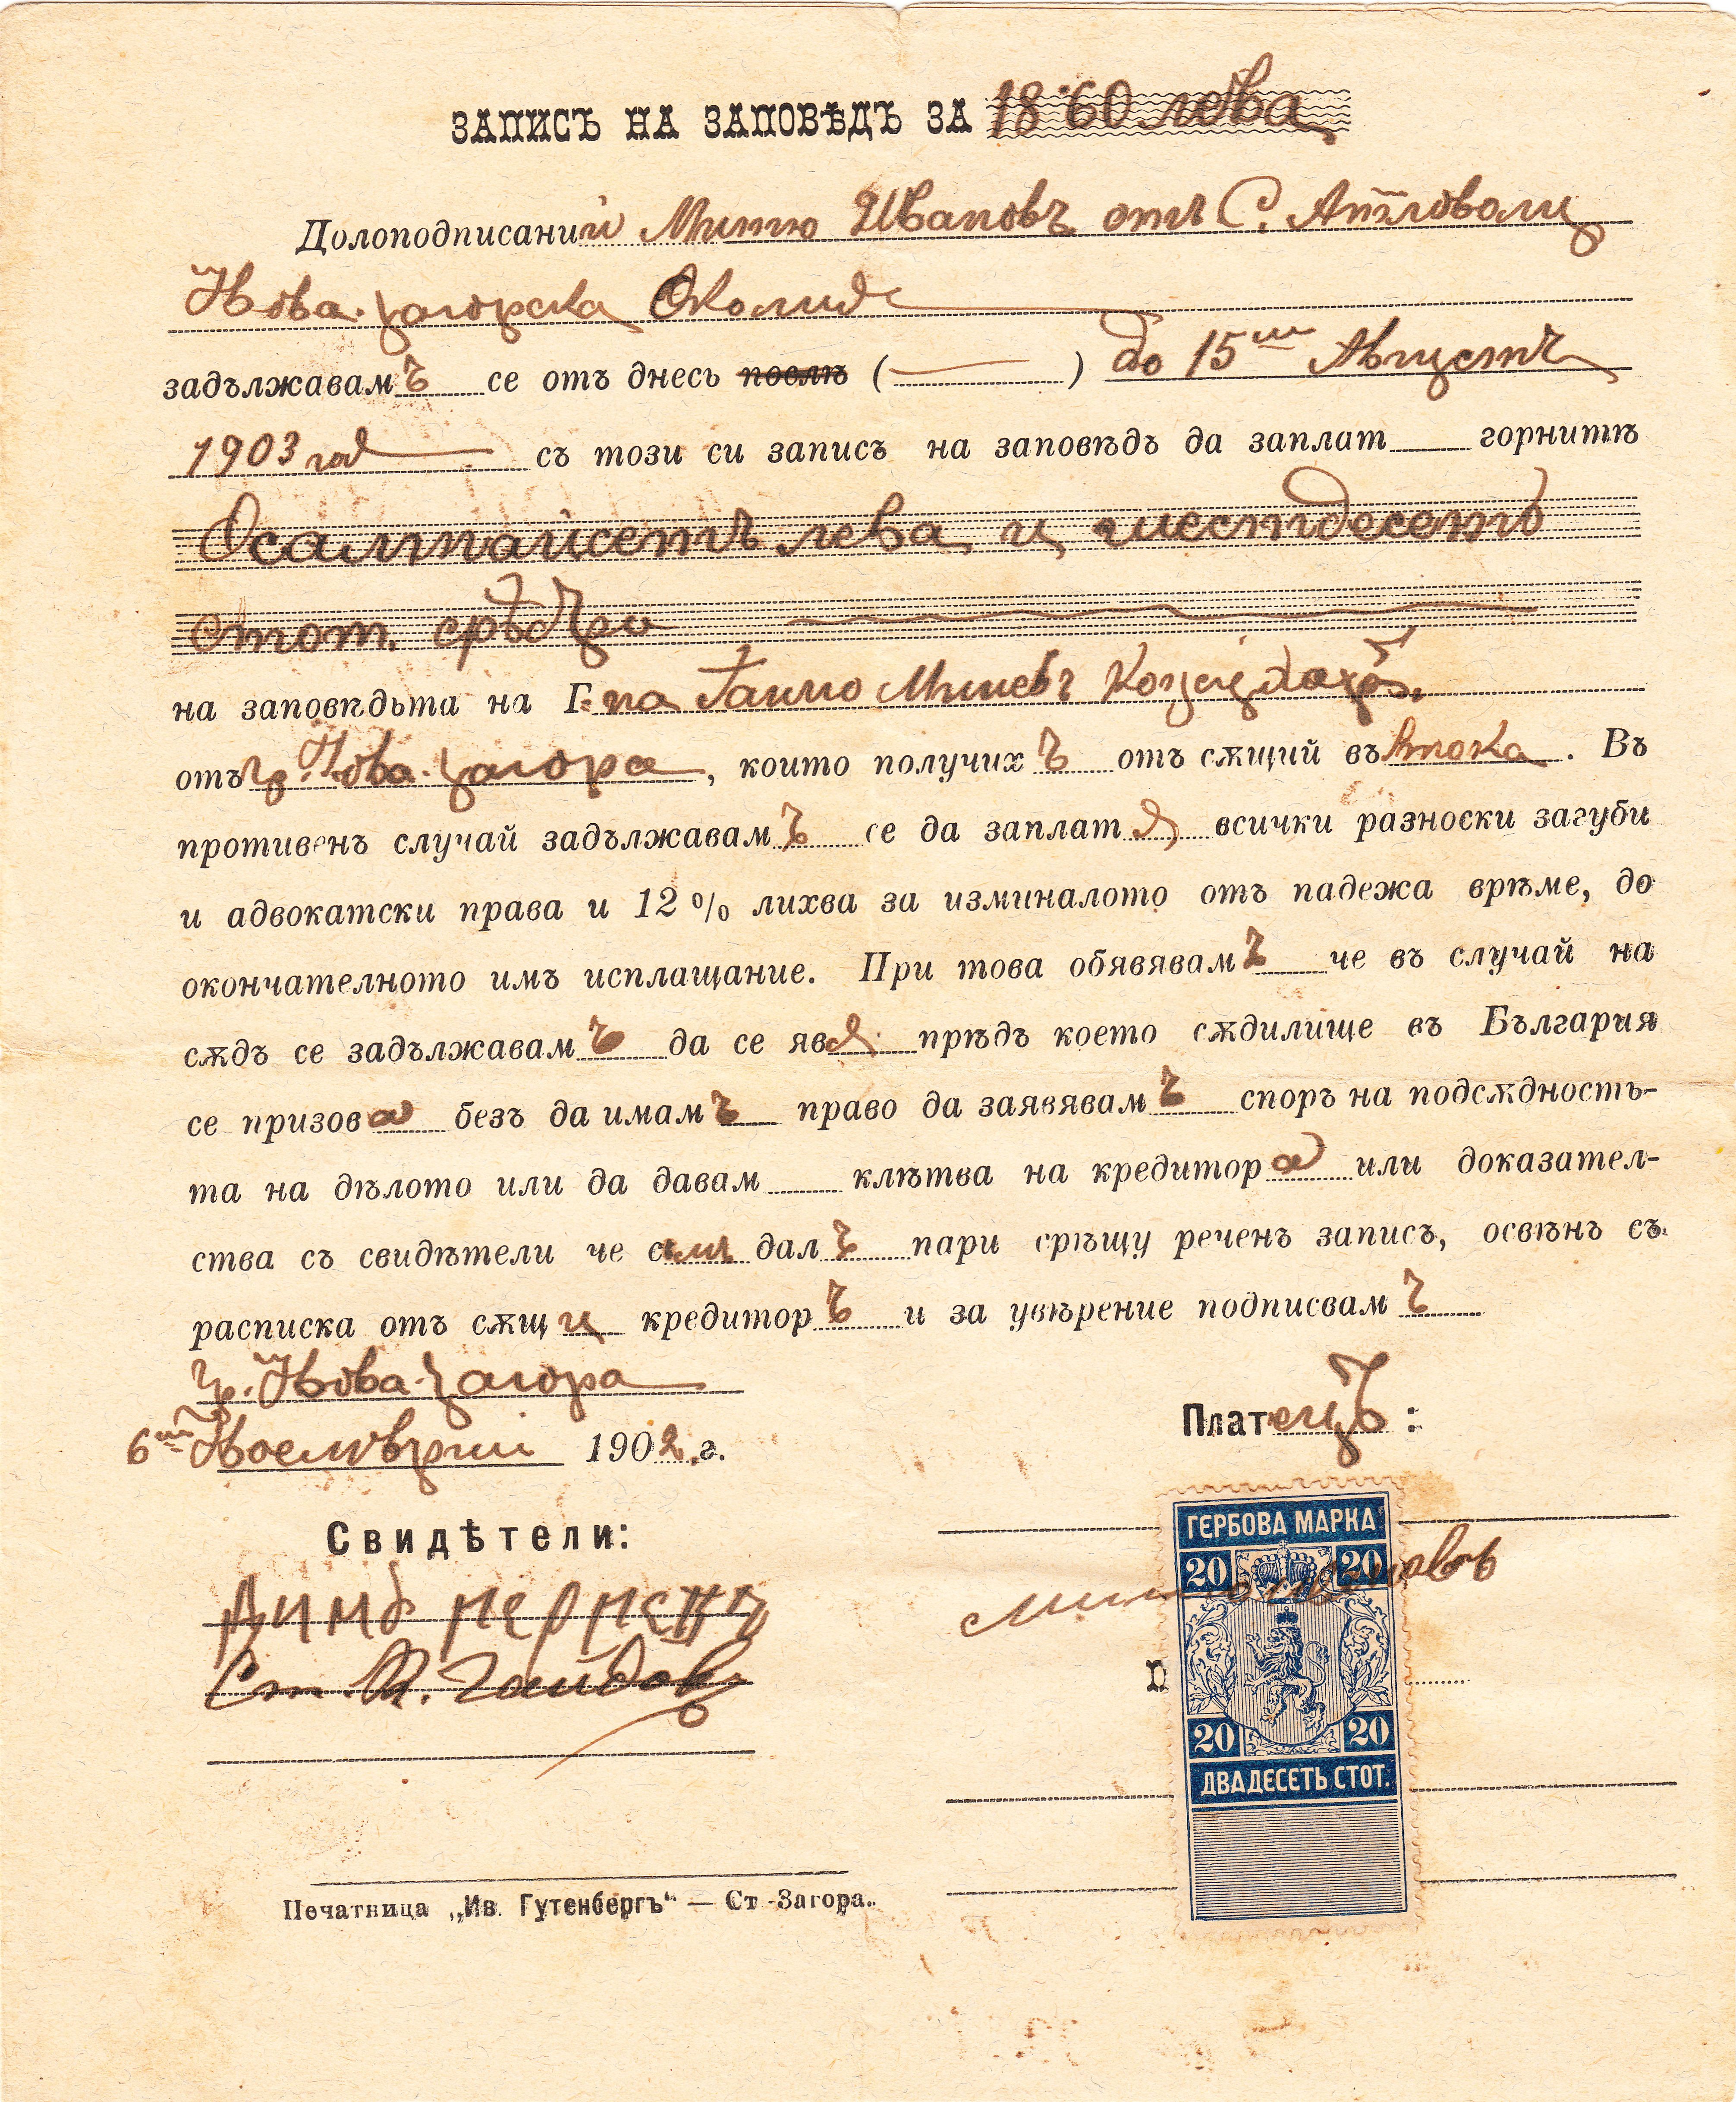 ЗАПИСЪ НА ЗАПОВѢДЪ ЗА 18·60 лева
Долоподписаний Митю Ивановъ отъ С.
Нова-Загорска Околия
задължавамъ се отъ днесь послѣ ( ) до 15ий Августъ
1903 год съ този си записъ на заповѣдь да заплат горнитѣ
Осамнайсетъ лева и шестдесетъ
стот. срѣбро
на заповѣдьта на Г. на Ганчо Миневъ
отъ гр. Нова-Загора, които получихъ отъ сѫщий въ стока. Въ
противенъ случай задължавамъ се да заплатя всички разноски загуби
и адвокатски права и 12% лихва за изминалото отъ падежа врѣме, до
окончателното имъ исплащание. При това обявявамъ че въ случай на
сѫдъ се задължавамъ да се явя прѣдъ което сѫдилище въ България
се призова безъ да имамъ право да заявявамъ споръ на подсѫдностъ-
та на дѣлото или да давам клѣтва на кредитора или доказател-
ства съ свидѣтели че съмъ далъ пари срѣщу реченъ записъ, освѣнъ съ
расписка отъ сѫщи кредиторъ и за увѣрение подписвамъ
гр. Нова-Загора
6ий Ноемврий 1902 г.
Платецъ :
Свидѣтели:
ГЕРБОВА МАРКА
20 20
Митю Ивановъ
Димо
Ст. Гайдовъ
П
20 20
ДВАДЕСЕТЬ СТОТ.
Печатница „Ив. Гутенбергъ“ — Ст-Загора.